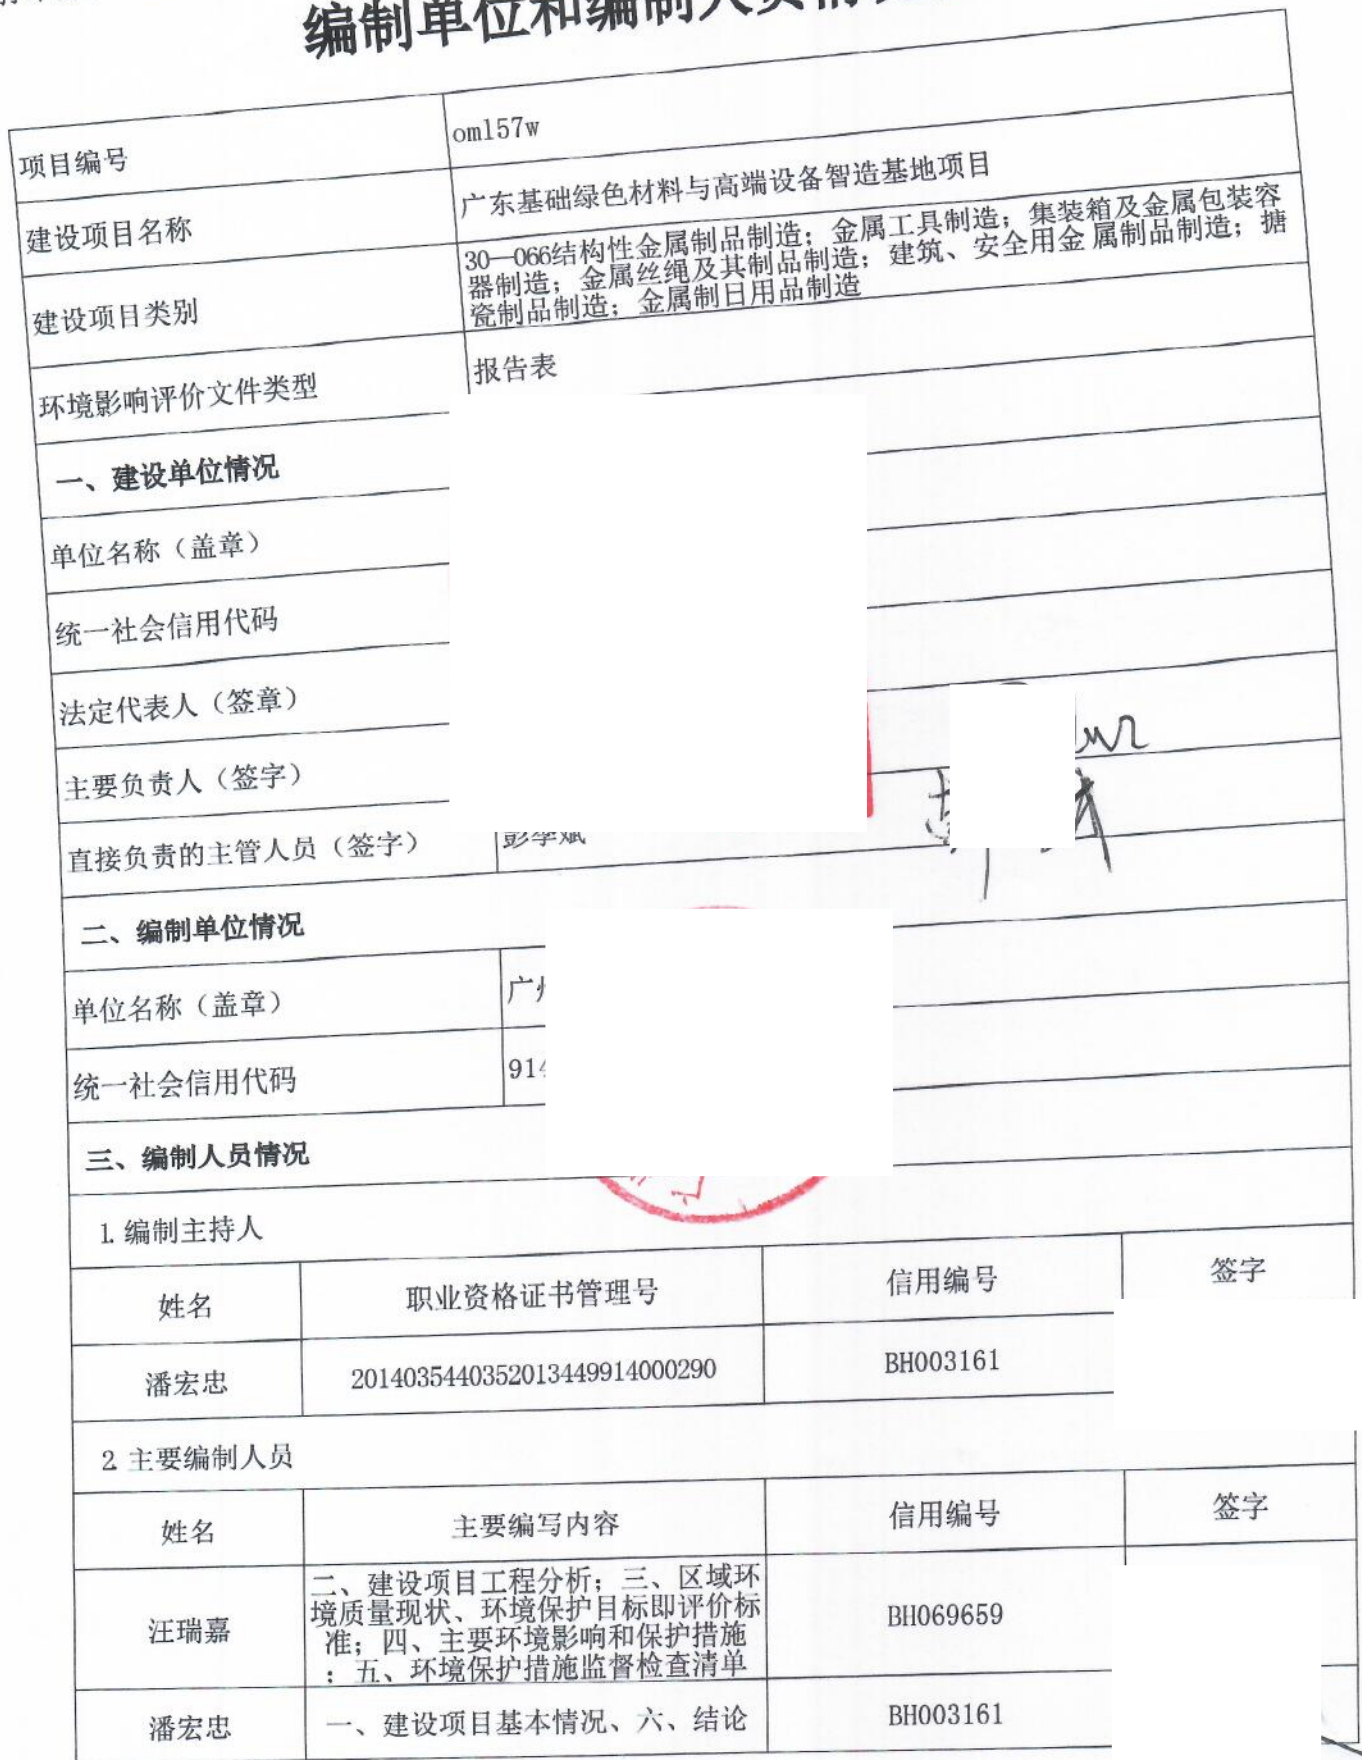 编制单位和编制人员情
项目编号
om157w
建设项目名称
广东基础绿色材料与高端设备智造基地项目
建设项目类别
30—066结构性金属制品制造；金属工具制造；集装箱及金属包装容
器制造；金属丝绳及其制品制造；建筑、安全用金属制品制造；搪
瓷制品制造；金属制日用品制造
环境影响评价文件类型
报告表
一、建设单位情况
单位名称（盖章）
统一社会信用代码
法定代表人（签章）
主要负责人（签字）
直接负责的主管人员（签字）
二、编制单位情况
单位名称（盖章）
广
统一社会信用代码
914
三、编制人员情况
1.编制主持人
姓名
职业资格证书管理号
信用编号
签字
潘宏忠
2014035440352013449914000290
BH003161
2.主要编制人员
姓名
主要编写内容
信用编号
签字
汪瑞嘉
二、建设项目工程分析；三、区域环
境质量现状、环境保护目标即评价标
准；四、主要环境影响和保护措施
；五、环境保护措施监督检查清单
BH069659
潘宏忠
一、建设项目基本情况、六、结论
BH003161